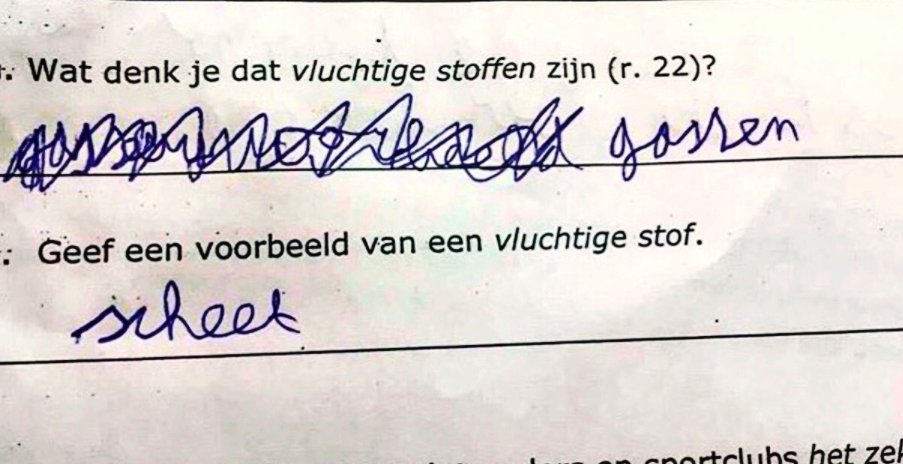 . Wat denk je dat vluchtige stoffen zijn (r. 22)?
gassen
: Geef een voorbeeld van een vluchtige stof.
scheet
en sportclubs het zek